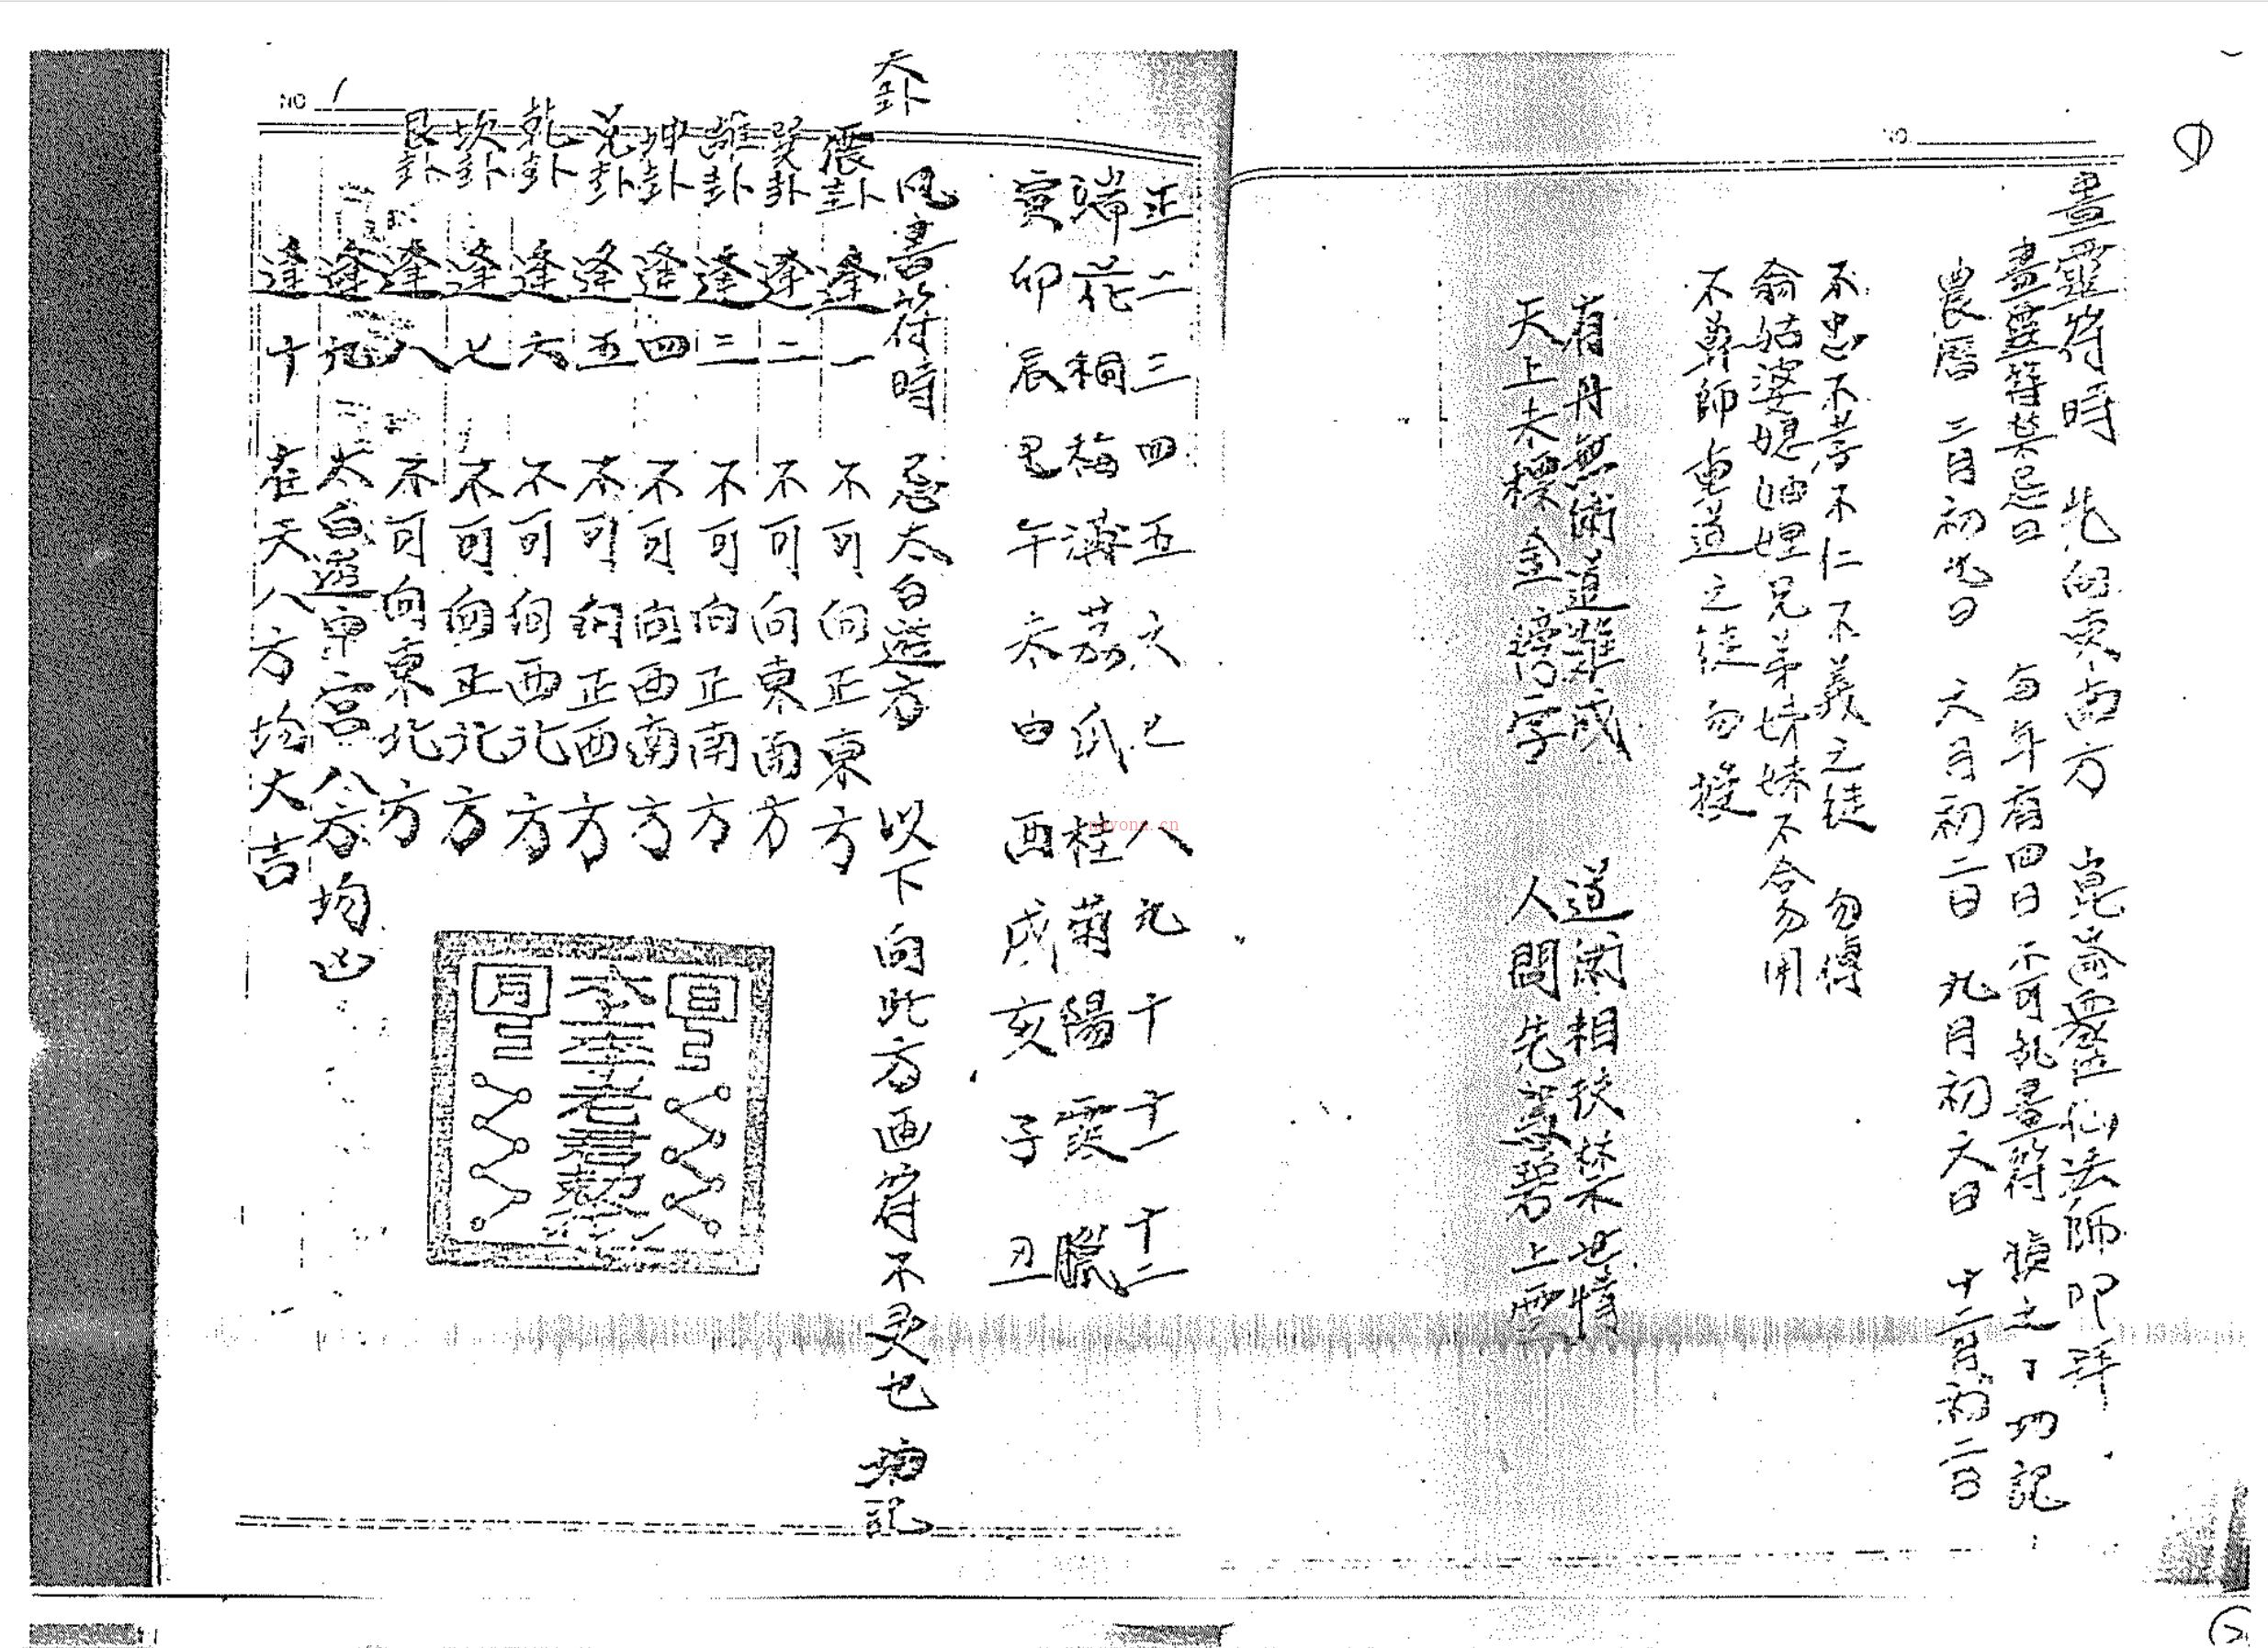 ①
NO.
畫靈符時 先向東南方 崑崙眾仙法師叩拜
畫靈符禁忌日 每年有四日不可乱畫符 慎之 切記
農曆 三月初九日 六月初二日 九月初六日 十二月初二日
不忠不孝不仁不義之徒 勿傳
翁姑婆媳妯娌兄弟姊妹不合勿用
不尊師重道之徒勿授
有丹無術道難成 道術相扶禁不世情
天上未標金榜字 人間先寫碧上雲
正二三四五六七八九十十一十二
端花桐梅蒲荔瓜桂菊陽霞臘
寅卯辰巳午未申酉戌亥子丑
天卦
凡書符時 忌太白遊方 以下向此方画符不灵也 切記
NO 1
震卦 逢一 不可向正東方
巽卦 逢二 不可向東南方
離卦 逢三 不可向正南方
坤卦 逢四 不可向西南方
兌卦 逢五 不可向正西方
乾卦 逢六 不可向西北方
坎卦 逢七 不可向正北方
艮卦 逢八 不可向東北方
逢九 太白遊中宮八方均凶
逢十 在天八方均大吉
日
李老君勅
月
nayona.cn